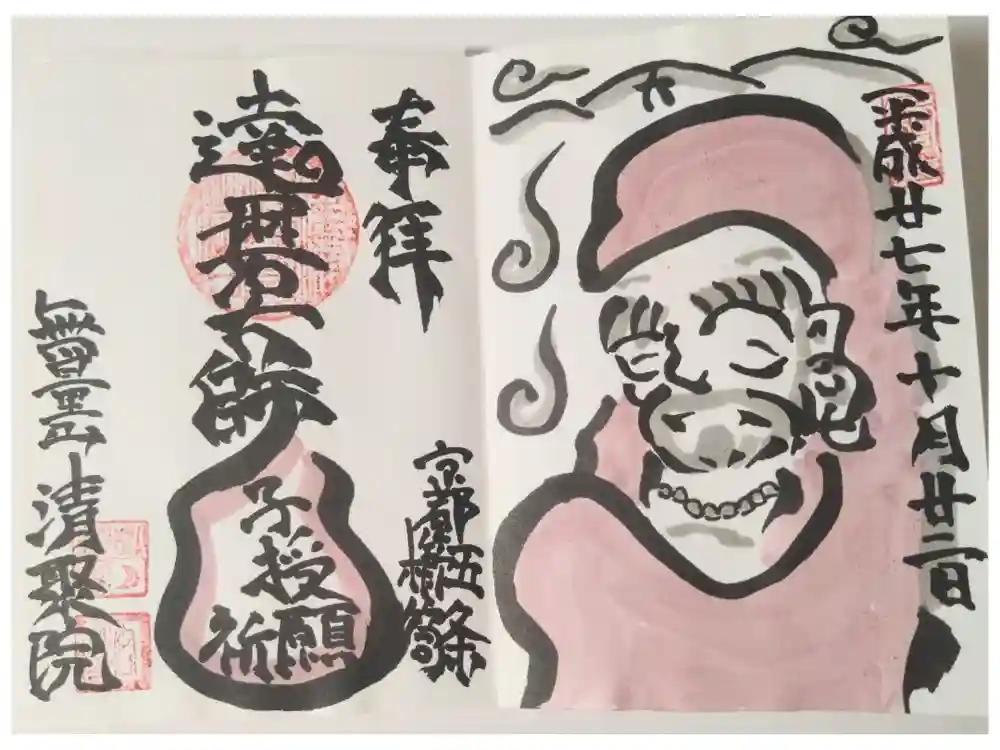 平成廿七年十月廿二日
奉拝
京都
達磨大師
子授
祈願
無量山 清聚院